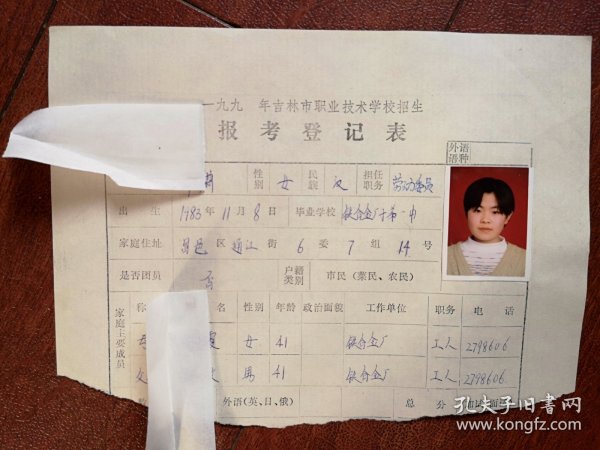 一九九 年吉林市职业技术学校招生
报考登记表
外语语种
莉 性别 女 民族 汉 担任职务 劳动委员
出生 1983年11月8日 毕业学校 铁合金厂子弟一中
家庭住址 昌邑区通江街6委7组14号
是否团员 否 户籍类别 市民(菜民、农民)
家庭主要成员
称 名 性别 年龄 政治面貌 工作单位 职务 电话
母 霞 女 41 铁合金厂 工人 2798606
父 男 41 铁合金厂 工人 2798606
外语(英、日、俄) 总分
孔夫子旧书网
www.kongfz.com